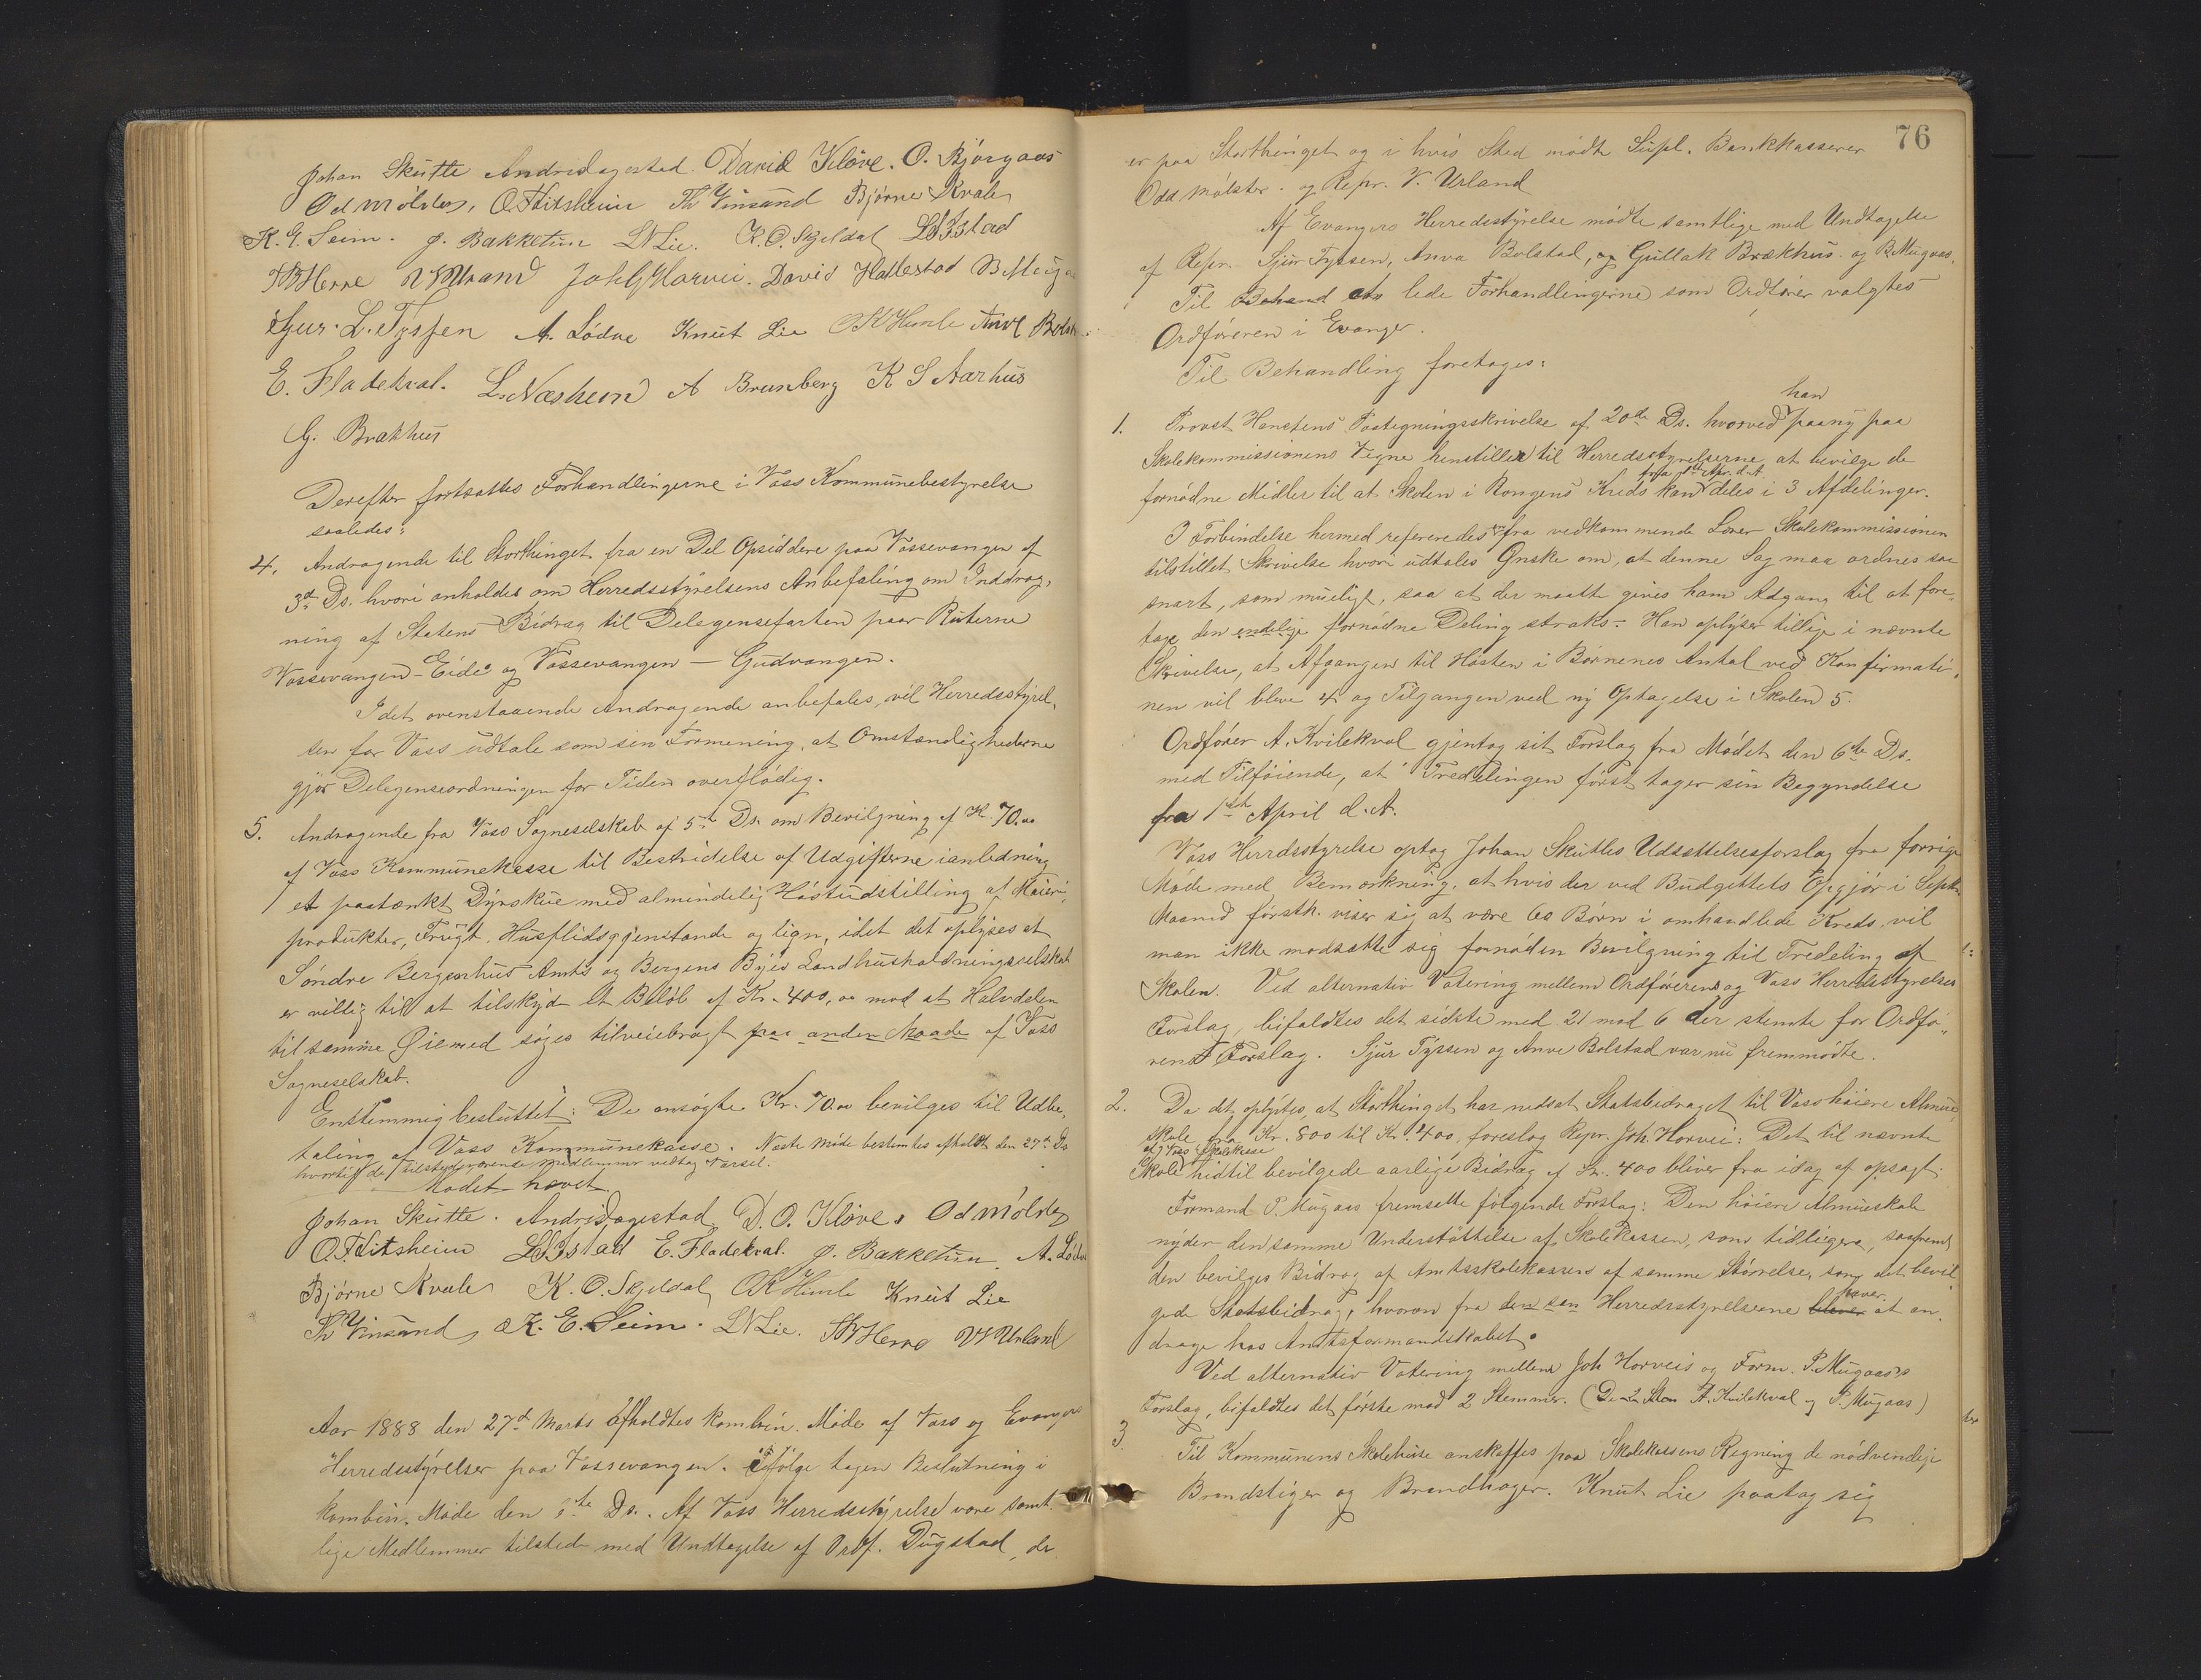 Johan Skutle Andrs Dagestad. David Kløve. O. Bjørgaas
Od Mölster, O. Fitsheim Th Vinsand Bjørne Kvale
K. E. Seim. J. Bakketun LNLie. K. O. Skjeldal LBIstad
TBHerre WUrland Joh G Horvei. David Hallestad
Sjur. L. Tyssen A. Lödve Knut Lie OKHimle Anve Bolst
E. Fladekval. L. Næsheim A Brunberg K S Aarhus
G. Brækhus
Derefter fortsattes Forhandlingerne i Voss Kommunebestyrelse
saaledes:
4. Andragende til Storthinget fra en Del Opsiddere paa Vossevangen af
3d. Ds. hvori anholdes om Herredsstyrelsens Anbefaling om Inddrag,
ning af Statens Bidrag til Delegensefarten paa Ruterne
Vossevangen – Eide og Vossevangen — Gudvangen.
Idet ovenstaaende Andragende anbefales, vil Herredsstyrel,
sen for Voss udtale som sin Formening, at Omstændighederne
gjør Delegenseordningen for Tiden overflødig.
5. Andragende fra Voss Sogneselskab af 5te Ds. om Bevilgning af Kr 70.00
af Voss Kommunekasse til Bestridelse af Udgifterne ianledning
et paatænkt Dyrskue med almindelig Høstudstilling af Meieri,
produkter, Frugt, Husflidsgjenstande og lign, idet det oplyses at
Søndre Bergenhus Amts og Bergens Byes Landhusholdningsselskab
er villig til at tilskyd et Beløb af Kr. 400,00 mod at Halvdelen
til samme Øiemed søges tilveiebragt paa anden Maade af Voss
Sogneselskab.
Enstemmig besluttet: De ansøgte Kr. 70.00 bevilges til Udbe,
taling af Voss Kommunekasse. Næste Møde bestemtes afholdt den 27de Ds
hvortil de tilstedeværende Medlemmer vedtog Varsel.
Mødet hævet
Johan Skutle. Andrs Dagestad D. O. Kløve. Od Mölster
O. Fitsheim LBIstad E. Fladekval. J. Bakketun. A. Lödve
Bjørne Kvale K. O. Skjeldal OKHimle Knut Lie
Th Vinsand K. E. Seim. LNLie. TBHerre WUrland
Aar 1888 den 27de Marts afholdtes kombin. Møde af Voss og Evangers
Herredsstyrelser paa Vossevangen. Ifølge tagen Beslutning i
kombin. Møde den 6te Ds. Af Voss Herredsstyrelse vare samt,
lige Medlemmer tilstede med Undtagelse af Ordf. Dugstad, der
76
er paa Storthinget og i hvis Sted mødte Supl. Bankkasserer
Odd Mølster. og Repr. V. Urland
Af Evangers Herredsstyrelse mødte samtlige med Undtagelse
af Repr. Sjur Tyssen, Anve Bolstad, og Gullak Brækhus. og P. Mugaas.
Til at lede Forhandlingerne som Ordfører valgtes
Ordføreren i Evanger.
Til Behandling foretages:
han
1. Provst Hanstens Paategningsskrivelse af 20de Ds. hvorved paany paa
Skolekommissionens Vegne henstiller til Herredsstyrelserne at bevilge de
fra 1ste Apr. d. A.
fornødne Midler til at Skolen i Rongens Kreds kan deles i 3 Afdelinger.
I Forbindelse hermed refereredes en fra vedkommende Lærer Skolekommissionen
tilstillet Skrivelse hvori udtales Ønske om, at denne Sag maa ordnes saa
snart, som muligt, saa at der maatte gives ham Adgang til at fore,
tage den endelige fornødne Deling straks. Han oplyser tillige i nævnte
Skrivelse, at Afgangen til Høsten i Børnenes Antal ved Konfirmatio,
nen vil blive 4 og Tilgangen ved ny Optagelse i Skolen 5.
Ordfører A. Kvilekval gjentog sit Forslag fra Mødet den 6te Ds.
med Tilføiende, at Tredelingen først tager sin Begyndelse
fra 1ste April d. A.
Voss Herrdsstyrelse optog Johan Skutles Udsættelsesforslag fra forrige
Møde med Bemærkning, at hvis der ved Budgettets Opgjør i Septb.
Maaned førstk. viser sig at være 60 Børn i omhandlede Kreds, vil
man ikke modsætte sig fornøden Bevilgning til Tredeling af
Skolen. Ved alternativ Votering mellem Ordførerens og Voss Herredsstyrelses
Forslag, bifaldtes det sidste med 21 mod 6 der stemte for Ordfø,
rens Forslag. Sjur Tyssen og Anve Bolstad var nu fremmødte.
2. Da det oplystes, at Storthinget har nedsat Statsbidraget til Voss høiere Almue,
skole fra Kr. 800 til Kr. 400, foreslog Repr. Joh. Horvei: Det til nævnte
af Voss Skolekasse
Skole hidtil bevilgede aarlige Bidrag af Kr. 400 bliver fra idag af opsagt.
Formand P. Mugaas fremsatte følgende Forslag: Den høiere Almueskole
nyder den samme Understøttelse af Skolekassen, som tidligere, saafremt
den bevilges Bidrag af Amtsskolekassen af samme Størrelse, som det bevil,
haver
gede Statsbidrag, hvorom fra Herredsstyrelserne bliver at an,
drage hos Amtsformandskabet.
Ved alternativ Votering mellem Joh Horveis og Form. P. Mugaas's
Forslag, bifaldtes det første mod 2 Stemmer. (De 2 A. Kvilekval og P. Mugaas)
3. Til Kommunens Skolehuse anskaffes paa Skolekassens Regning de nødvendige
Brandstiger og Brandhager. Knut Lie paatog sig